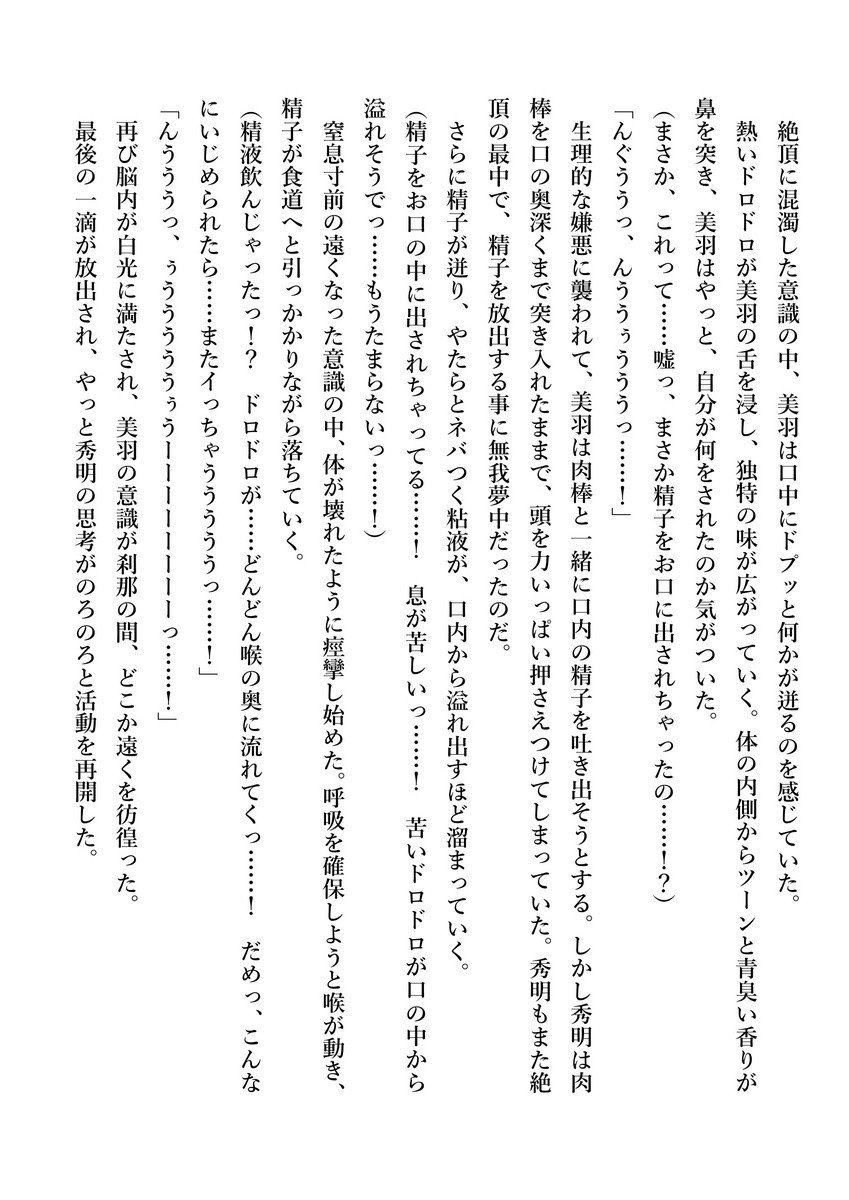 絶頂に混濁した意識の中、美羽は口中にドプッと何かが迸るのを感じていた。
熱いドロドロが美羽の舌を浸し、独特の味が広がっていく。体の内側からツーンと青臭い香りが
鼻を突き、美羽はやっと、自分が何をされたのか気がついた。
(まさか、これって……嘘っ、まさか精子をお口に出されちゃったの……!?)
「んぐううっ、んううぅうううっ……!」
生理的な嫌悪に襲われて、美羽は肉棒と一緒に口内の精子を吐き出そうとする。しかし秀明は肉
棒を口の奥深くまで突き入れたままで、頭を力いっぱい押さえつけてしまっていた。秀明もまた絶
頂の最中で、精子を放出する事に無我夢中だったのだ。
さらに精子が迸り、やたらとネバつく粘液が、口内から溢れ出すほど溜まっていく。
(精子をお口の中に出されちゃってる……! 息が苦しいっ……! 苦いドロドロが口の中から
溢れそうでっ……もうたまらないっ……!)
窒息寸前の遠くなった意識の中、体が壊れたように痙攣し始めた。呼吸を確保しようと喉が動き、
精子が食道へと引っかかりながら落ちていく。
(精液飲んじゃったっ!? ドロドロが……どんどん喉の奥に流れてくっ……! だめっ、こんな
にいじめられたら……またイっちゃうううううっ……!」
「んうううっ、ぅうううううぅうーーーーーーーっ……!」
再び脳内が白光に満たされ、美羽の意識が刹那の間、どこか遠くを彷徨った。
最後の一滴が放出され、やっと秀明の思考がのろのろと活動を再開した。